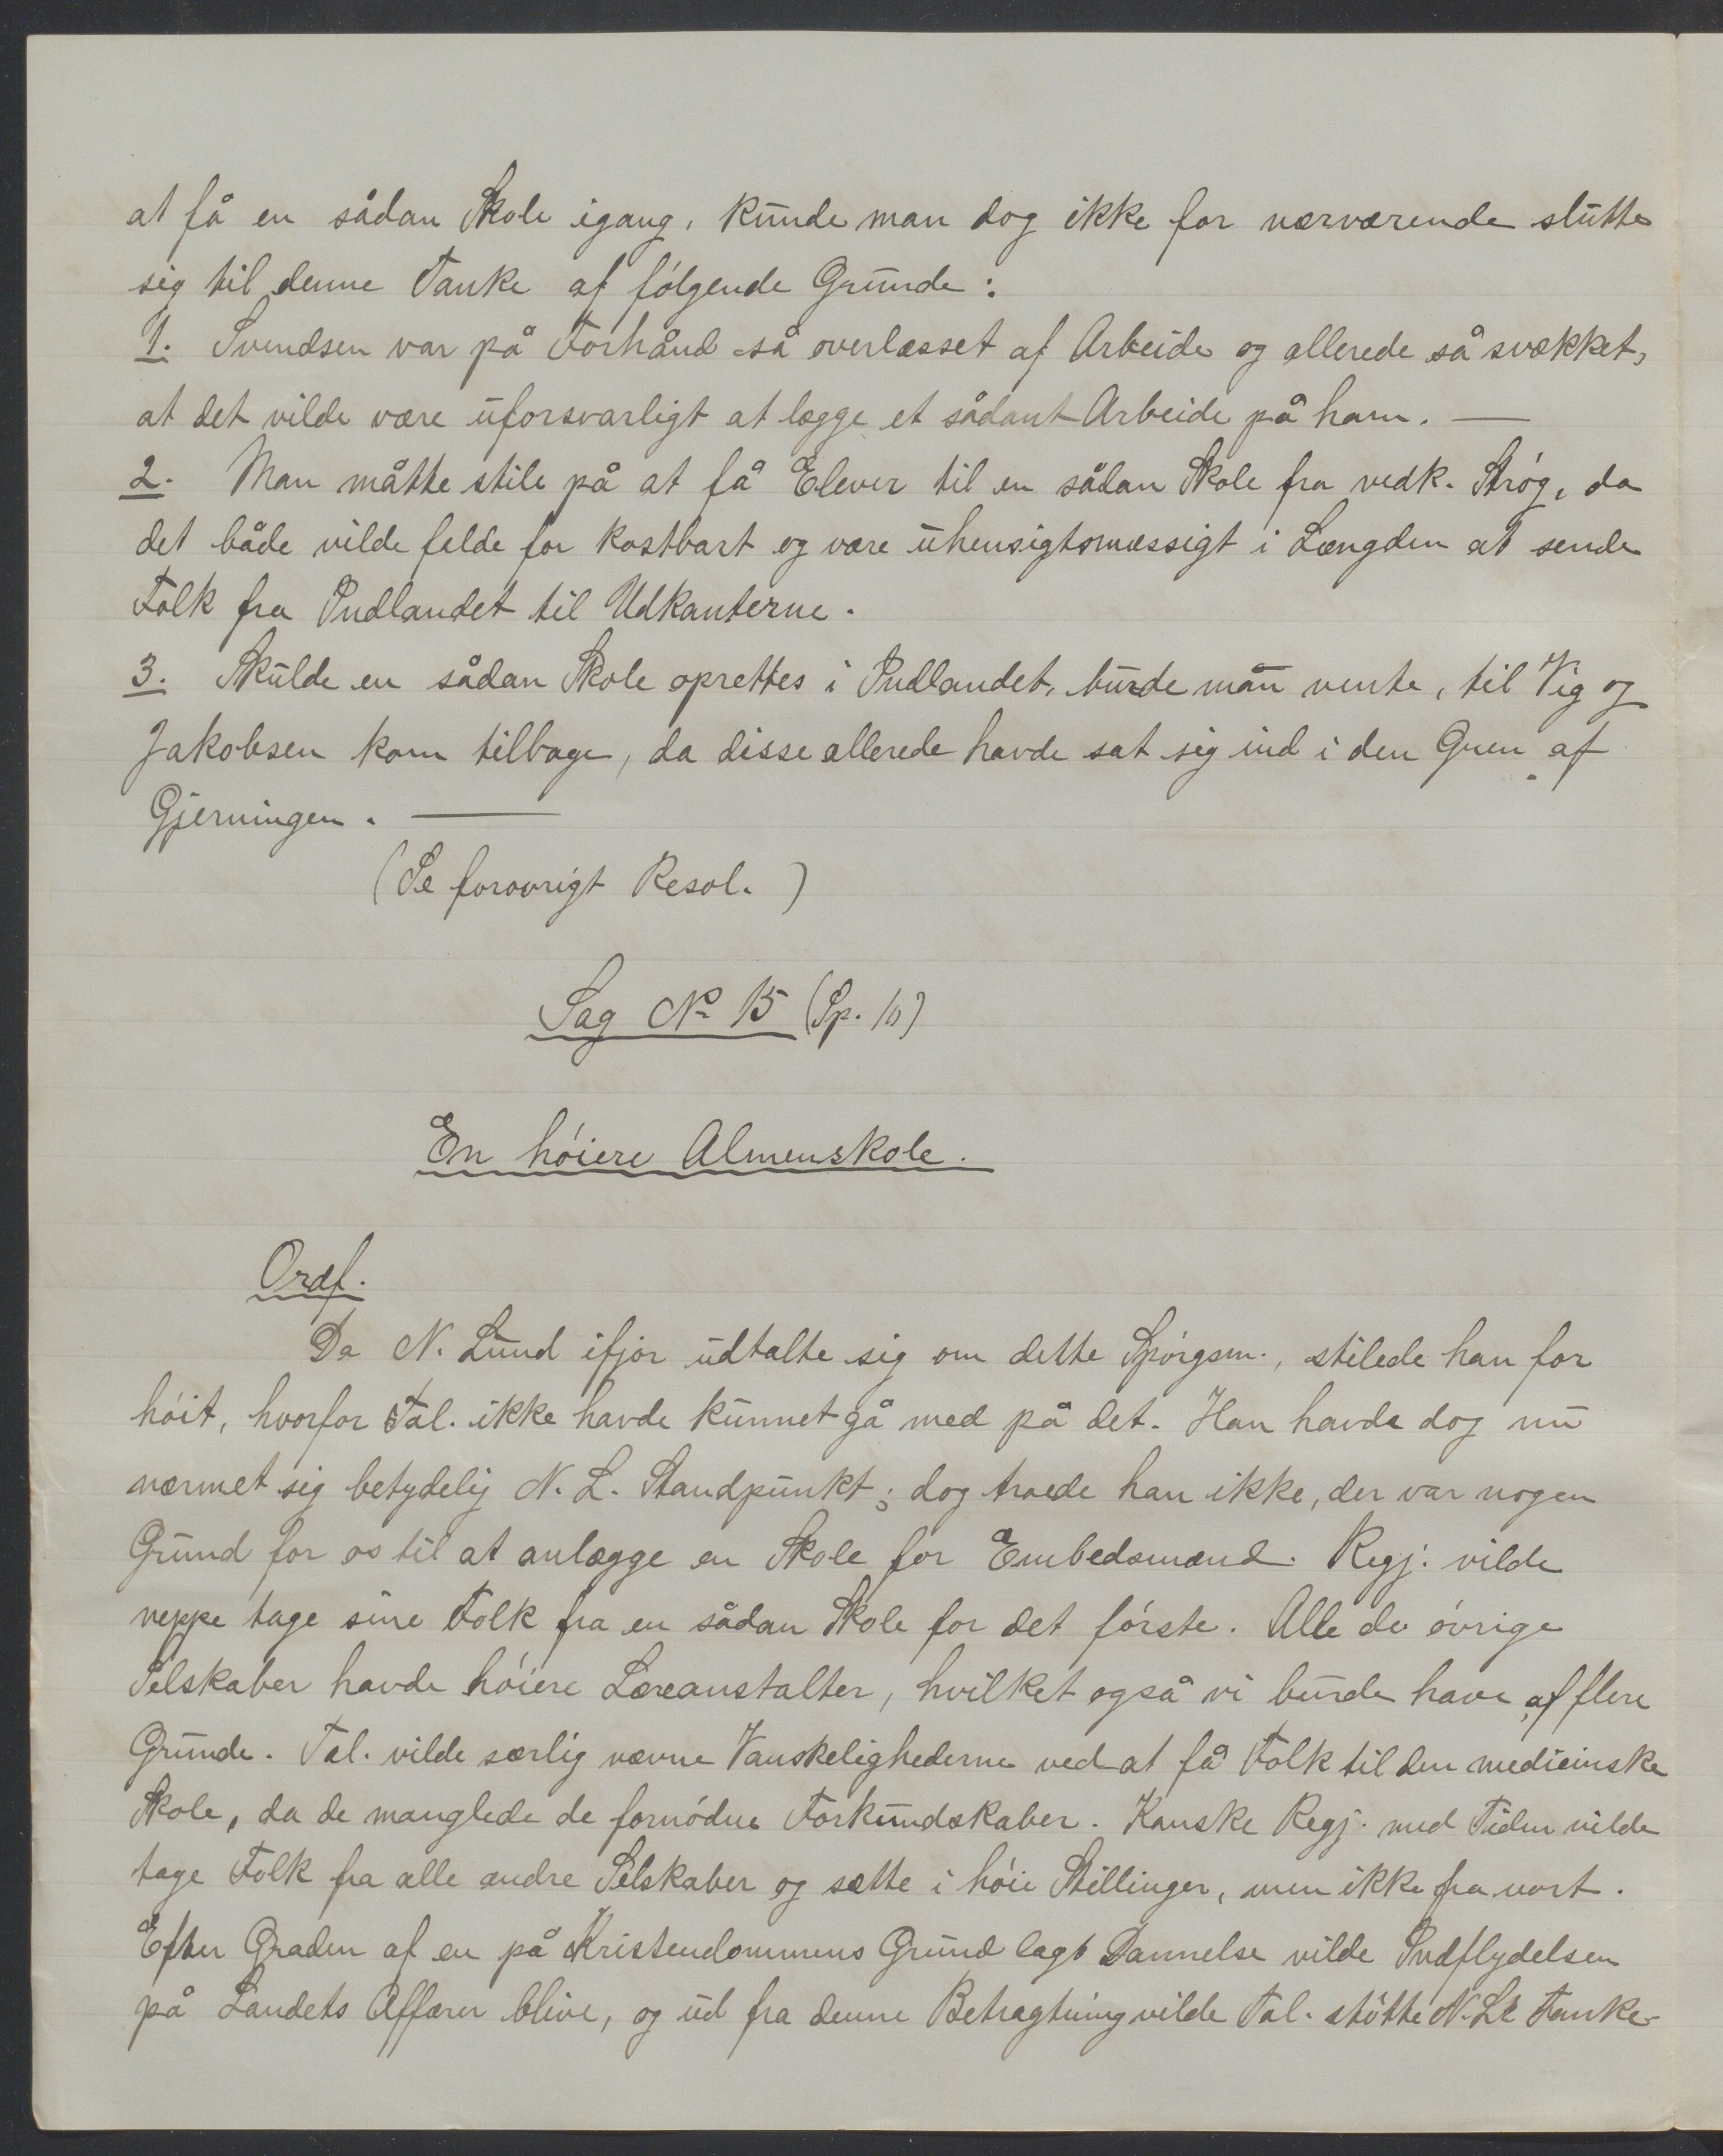 at få en sådan Skole igang, kunde man dog ikke for nærværende slutte
sig til denne Tanke af følgende Grunde:
1. Svendsen var på Forhånd så overlæsset af Arbeide og allerede så svækket,
at det vilde være uforsvarligt at lægge et sådant Arbeide på ham. —
2. Man måtte stile på at få Elever til en sådan Skole fra vedk. Strøg, da
det både vilde falde for kostbart og være uhensigtsmæssigt i Længden at sende
Folk fra Indlandet til Udkanterne.
3. Skulde en sådan Skole oprettes i Indlandet, burde man vente, til Vig og
Jakobsen kom tilbage, da disse allerede havde sat sig ind i den Gren af
Gjerningen. —
(Se forøvrigt Resol.)
Sag No 15 (Sp. 10)
En høiere Almenskole.
Ordf.
Da N. Lund ifjor udtalte sig om dette Spørgsm., stilede han for
høit, hvorfor Tal. ikke havde kunnet gå med på det. Han havde dog nu
nærmet sig betydelig N. L. Standpunkt; dog troede han ikke, der var nogen
Grund for os til at anlægge en Skole for Embedsmænd. Regj. vilde
neppe tage sine Folk fra en sådan Skole for det første. Alle de øvrige
Selskaber havde høiere Læreanstalter, hvilket også vi burde have af flere
Grunde. Tal. vilde særlig nævne Vanskelighederne ved at få Folk til den medicinske
Skole, da de manglede de fornødne Forkundskaber. Kanske Regj. med Tiden vilde
tage Folk fra alle andre Selskaber og sætte i høie Stillinger, men ikke fra vort.
Efter Graden af en på Kristendommens Grund lagt Dannelse vilde Indflydelsen
på Landets Affærer blive, og ud fra denne Betragtning vilde Tal. støtte N. Ls Tanke